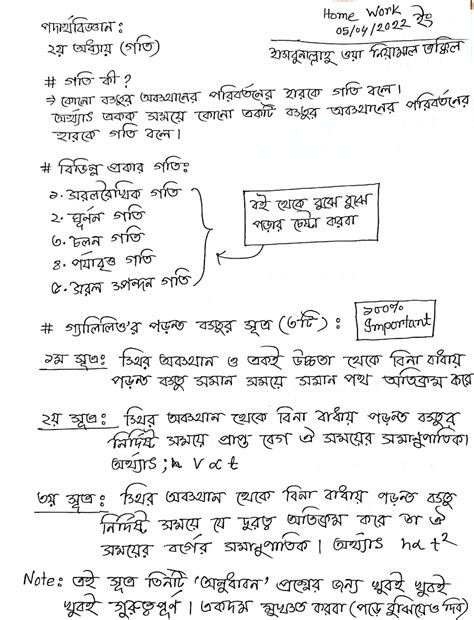 পদার্থবিজ্ঞান:
Home Work
05/04/2022 ইং
২য় অধ্যায় (গতি)
হাসবুনাল্লাহু ওয়া নিয়ামাল ওকিল
# গতি কী?
⇒ কোনো বস্তুর অবস্থানের পরিবর্তনের হারকে গতি বলে।
অর্থ্যাৎ একক সময়ে কোনো একটি বস্তুর অবস্থানের পরিবর্তনের
হারকে গতি বলে।
# বিভিন্ন প্রকার গতি:
১. সরলরৈখিক গতি
২. ঘূর্ণন গতি
৩. চলন গতি
৪. পর্যাবৃত্ত গতি
৫. সরল স্পন্দন গতি
বই থেকে বুঝে বুঝে
পড়ার চেষ্টা করবা
# গ্যালিলিও'র পড়ন্ত বস্তুর সূত্র (৩টি):
১০০%
Important
১ম সূত্র: স্থির অবস্থান ও একই উচ্চতা থেকে বিনা বাধায়
পড়ন্ত বস্তু সমান সময়ে সমান পথ অতিক্রম করে
২য় সূত্র: স্থির অবস্থান থেকে বিনা বাধায় পড়ন্ত বস্তুর
নির্দিষ্ট সময়ে প্রাপ্ত বেগ ঐ সময়ের সমানুপাতিক।
অর্থ্যাৎ; V ∝ t
৩য় সূত্র: স্থির অবস্থান থেকে বিনা বাধায় পড়ন্ত বস্তু
নির্দিষ্ট সময়ে যে দূরত্ব অতিক্রম করে তা ঐ
সময়ের বর্গের সমানুপাতিক। অর্থ্যাৎ h∝t²
Note: এই সূত্র তিনটি 'অনুধাবন' প্রশ্নের জন্য খুবই খুবই
খুবই গুরুত্বপূর্ণ। একদম মুখস্ত করবা (পড়ে বুঝিয়েও দিব)